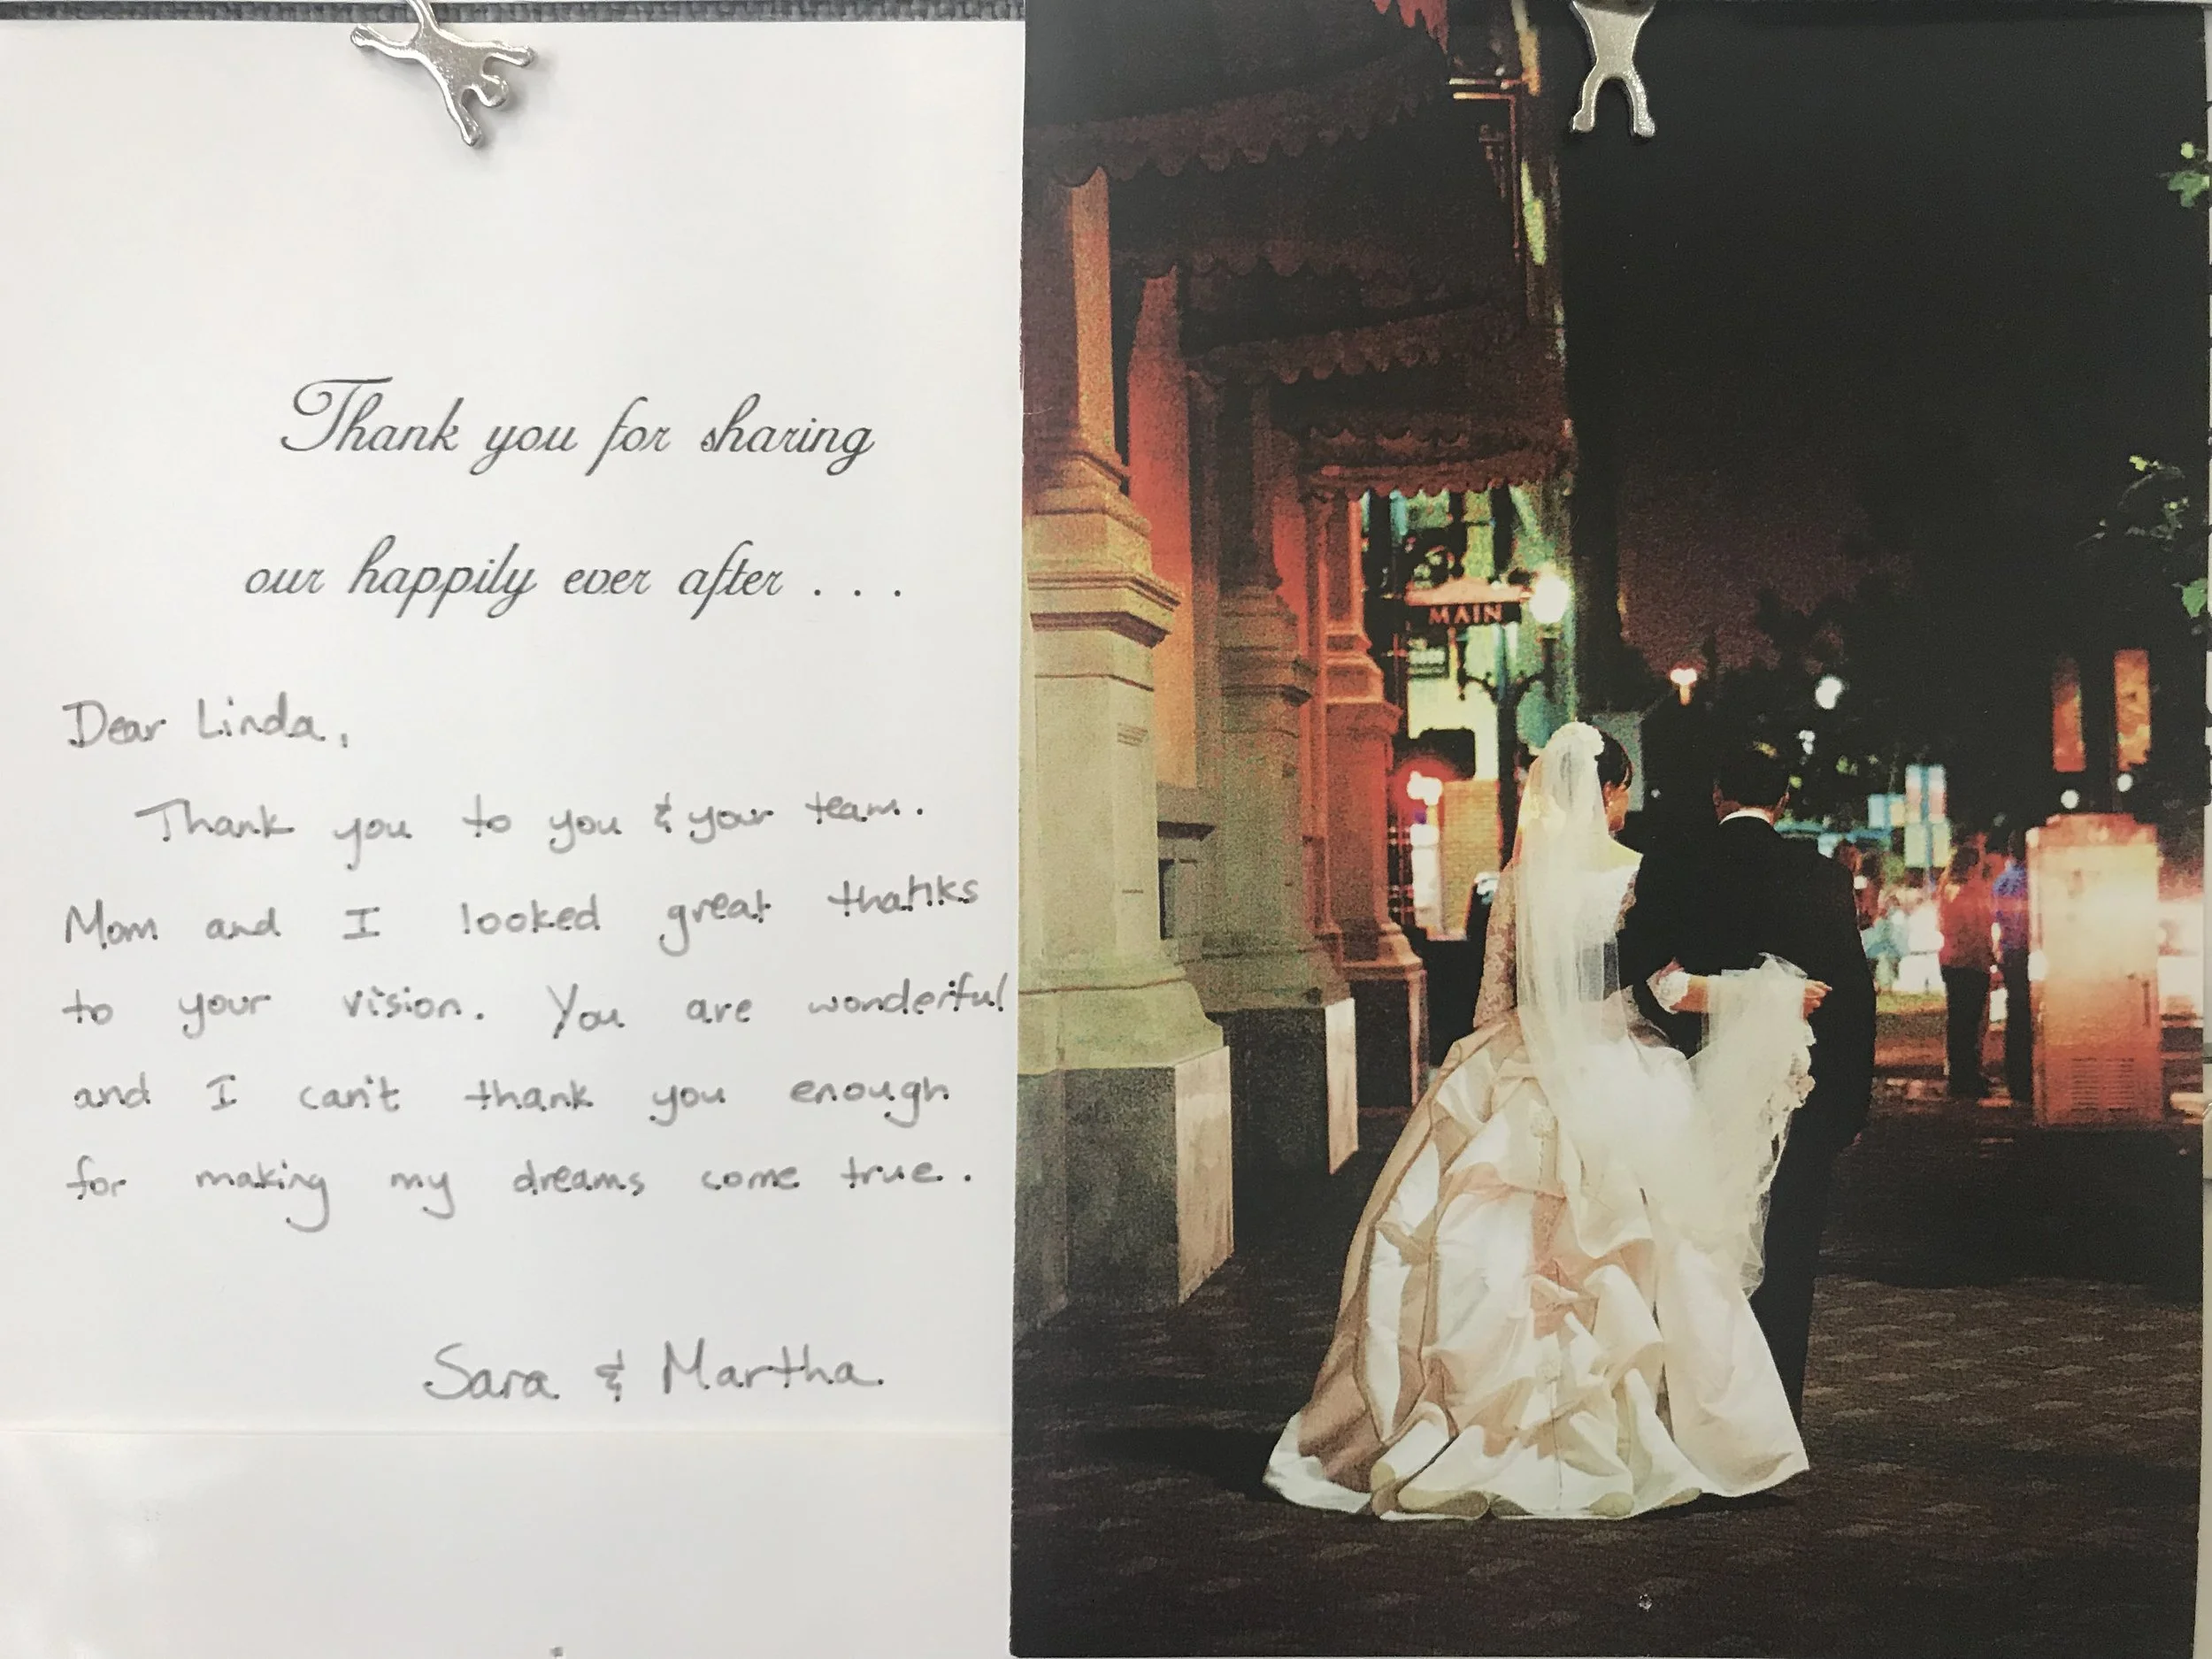 Thank you for sharing
our happily ever after . . .
Dear Linda,
Thank you to you & your team.
Mom and I looked great thanks
to your vision. You are wonderful
and I can't thank you enough
for making my dreams come true.
Sara & Martha.
MAIN